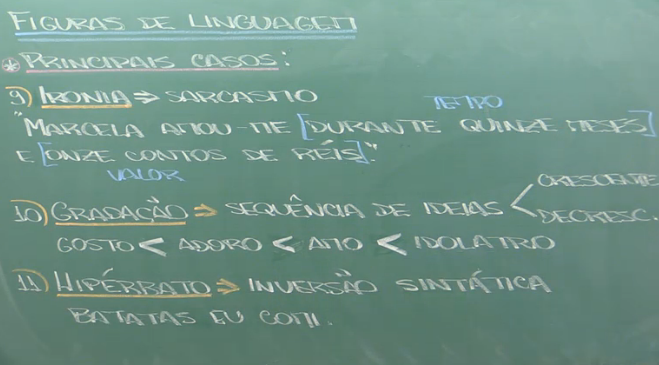 FIGURAS DE LINGUAGEM
* PRINCIPAIS CASOS:
9) IRONIA ⇒ SARCASMO
TEMPO
"MARCELA AMOU-ME [DURANTE QUINZE MESES]
E [ONZE CONTOS DE RÉIS]."
VALOR
CRESCENTE
10) GRADAÇÃO ⇒ SEQUÊNCIA DE IDEIAS <
DECRESC.
GOSTO < ADORO < AMO < IDOLATRO
11) HIPÉRBATO ⇒ INVERSÃO SINTÁTICA
BATATAS EU COMI.